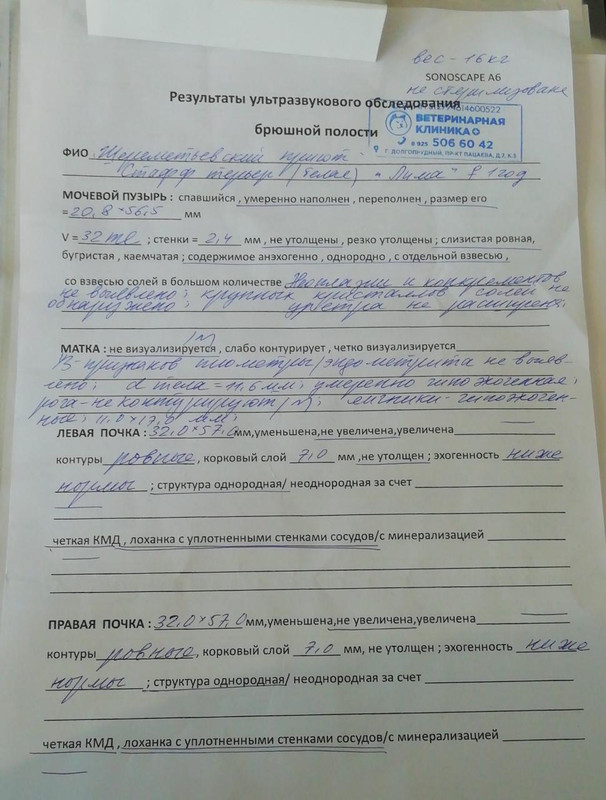 вес - 16 кг
SONOSCAPE A6
не стерилизована
Результаты ультразвукового обследования
брюшной полости
ВЕТЕРИНАРНАЯ
КЛИНИКА
8 925 506 60 42
Г. ДОЛГОПРУДНЫЙ, ПР-КТ ПАЦАЕВА, Д.7, К.5
ФИО : Шереметьевский приют
Стафф терьер (белая) "Лима" 1 год
МОЧЕВОЙ ПУЗЫРЬ : спавшийся , умеренно наполнен , переполнен , размер его
= 20,8 × 56,5 мм
V = 32 ml ; стенки = 2,4 мм , не утолщены , резко утолщены ; слизистая ровная,
бугристая , каемчатая ; содержимое анэхогенно , однородно , с отдельной взвесью ,
со взвесью солей в большом количестве Неоплазии и конкрементов
не выявлено; крупных кристаллов солей не
обнаружено; уретра не расширена.
МАТКА : не визуализируется , слабо контурирует , четко визуализируется
В-признаков пиометры/эндометрита не выяв-
лено; d тела = 11,6 мм; умеренно гипоэхогенная;
рога - не контурируют /N/; яичники - гипоэхоген-
ные; 11,0 × 17,0 мм;
ЛЕВАЯ ПОЧКА : 32,0 × 57,0 мм,уменьшена,не увеличена,увеличена
контуры ровные , корковый слой 7,0 мм ,не утолщен ; эхогенность ниже
нормы ; структура однородная/ неоднородная за счет
четкая КМД , лоханка с уплотненными стенками сосудов/с минерализацией
ПРАВАЯ ПОЧКА : 32,0 × 57,0 мм,уменьшена,не увеличена,увеличена
контуры ровные , корковый слой 7,0 мм , не утолщен ; эхогенность ниже
нормы ; структура однородная/ неоднородная за счет
четкая КМД , лоханка с уплотненными стенками сосудов/с минерализацией